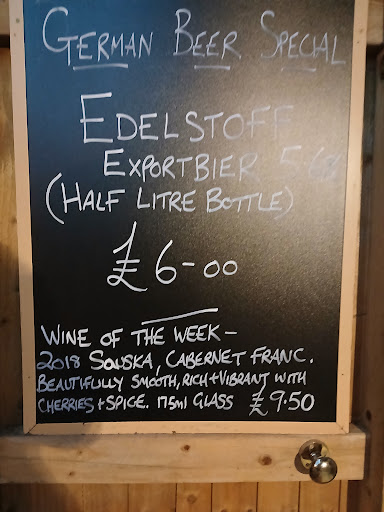 GERMAN BEER SPECIAL
EDELSTOFF
EXPORTBIER 5.6%
(HALF LITRE BOTTLE)
£6-00
WINE OF THE WEEK-
2018 SAUSKA, CABERNET FRANC.
BEAUTIFULLY SMOOTH, RICH+VIBRANT WITH
CHERRIES+SPICE. 175ml GLASS £9.50